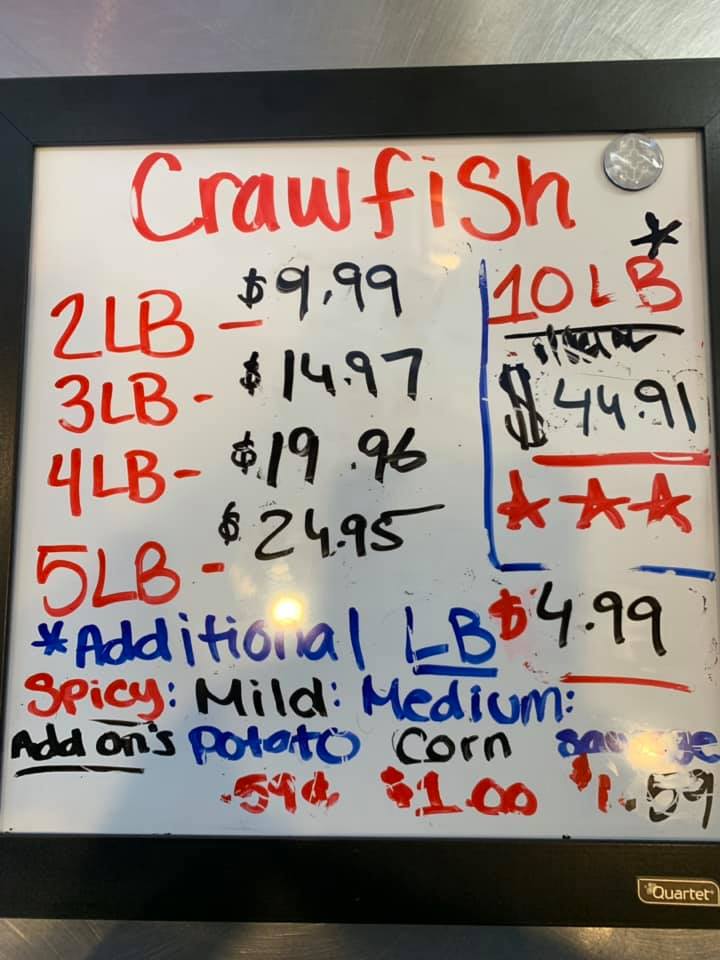 Crawfish
2LB - $9.99
3LB - $14.97
4LB - $19.96
5LB - $24.95
*
10LB
$44.91
*Additional LB $4.99
Spicy: Mild: Medium:
Add on's potato Corn sausage
.59¢ $1.00 $1.59
Quartet